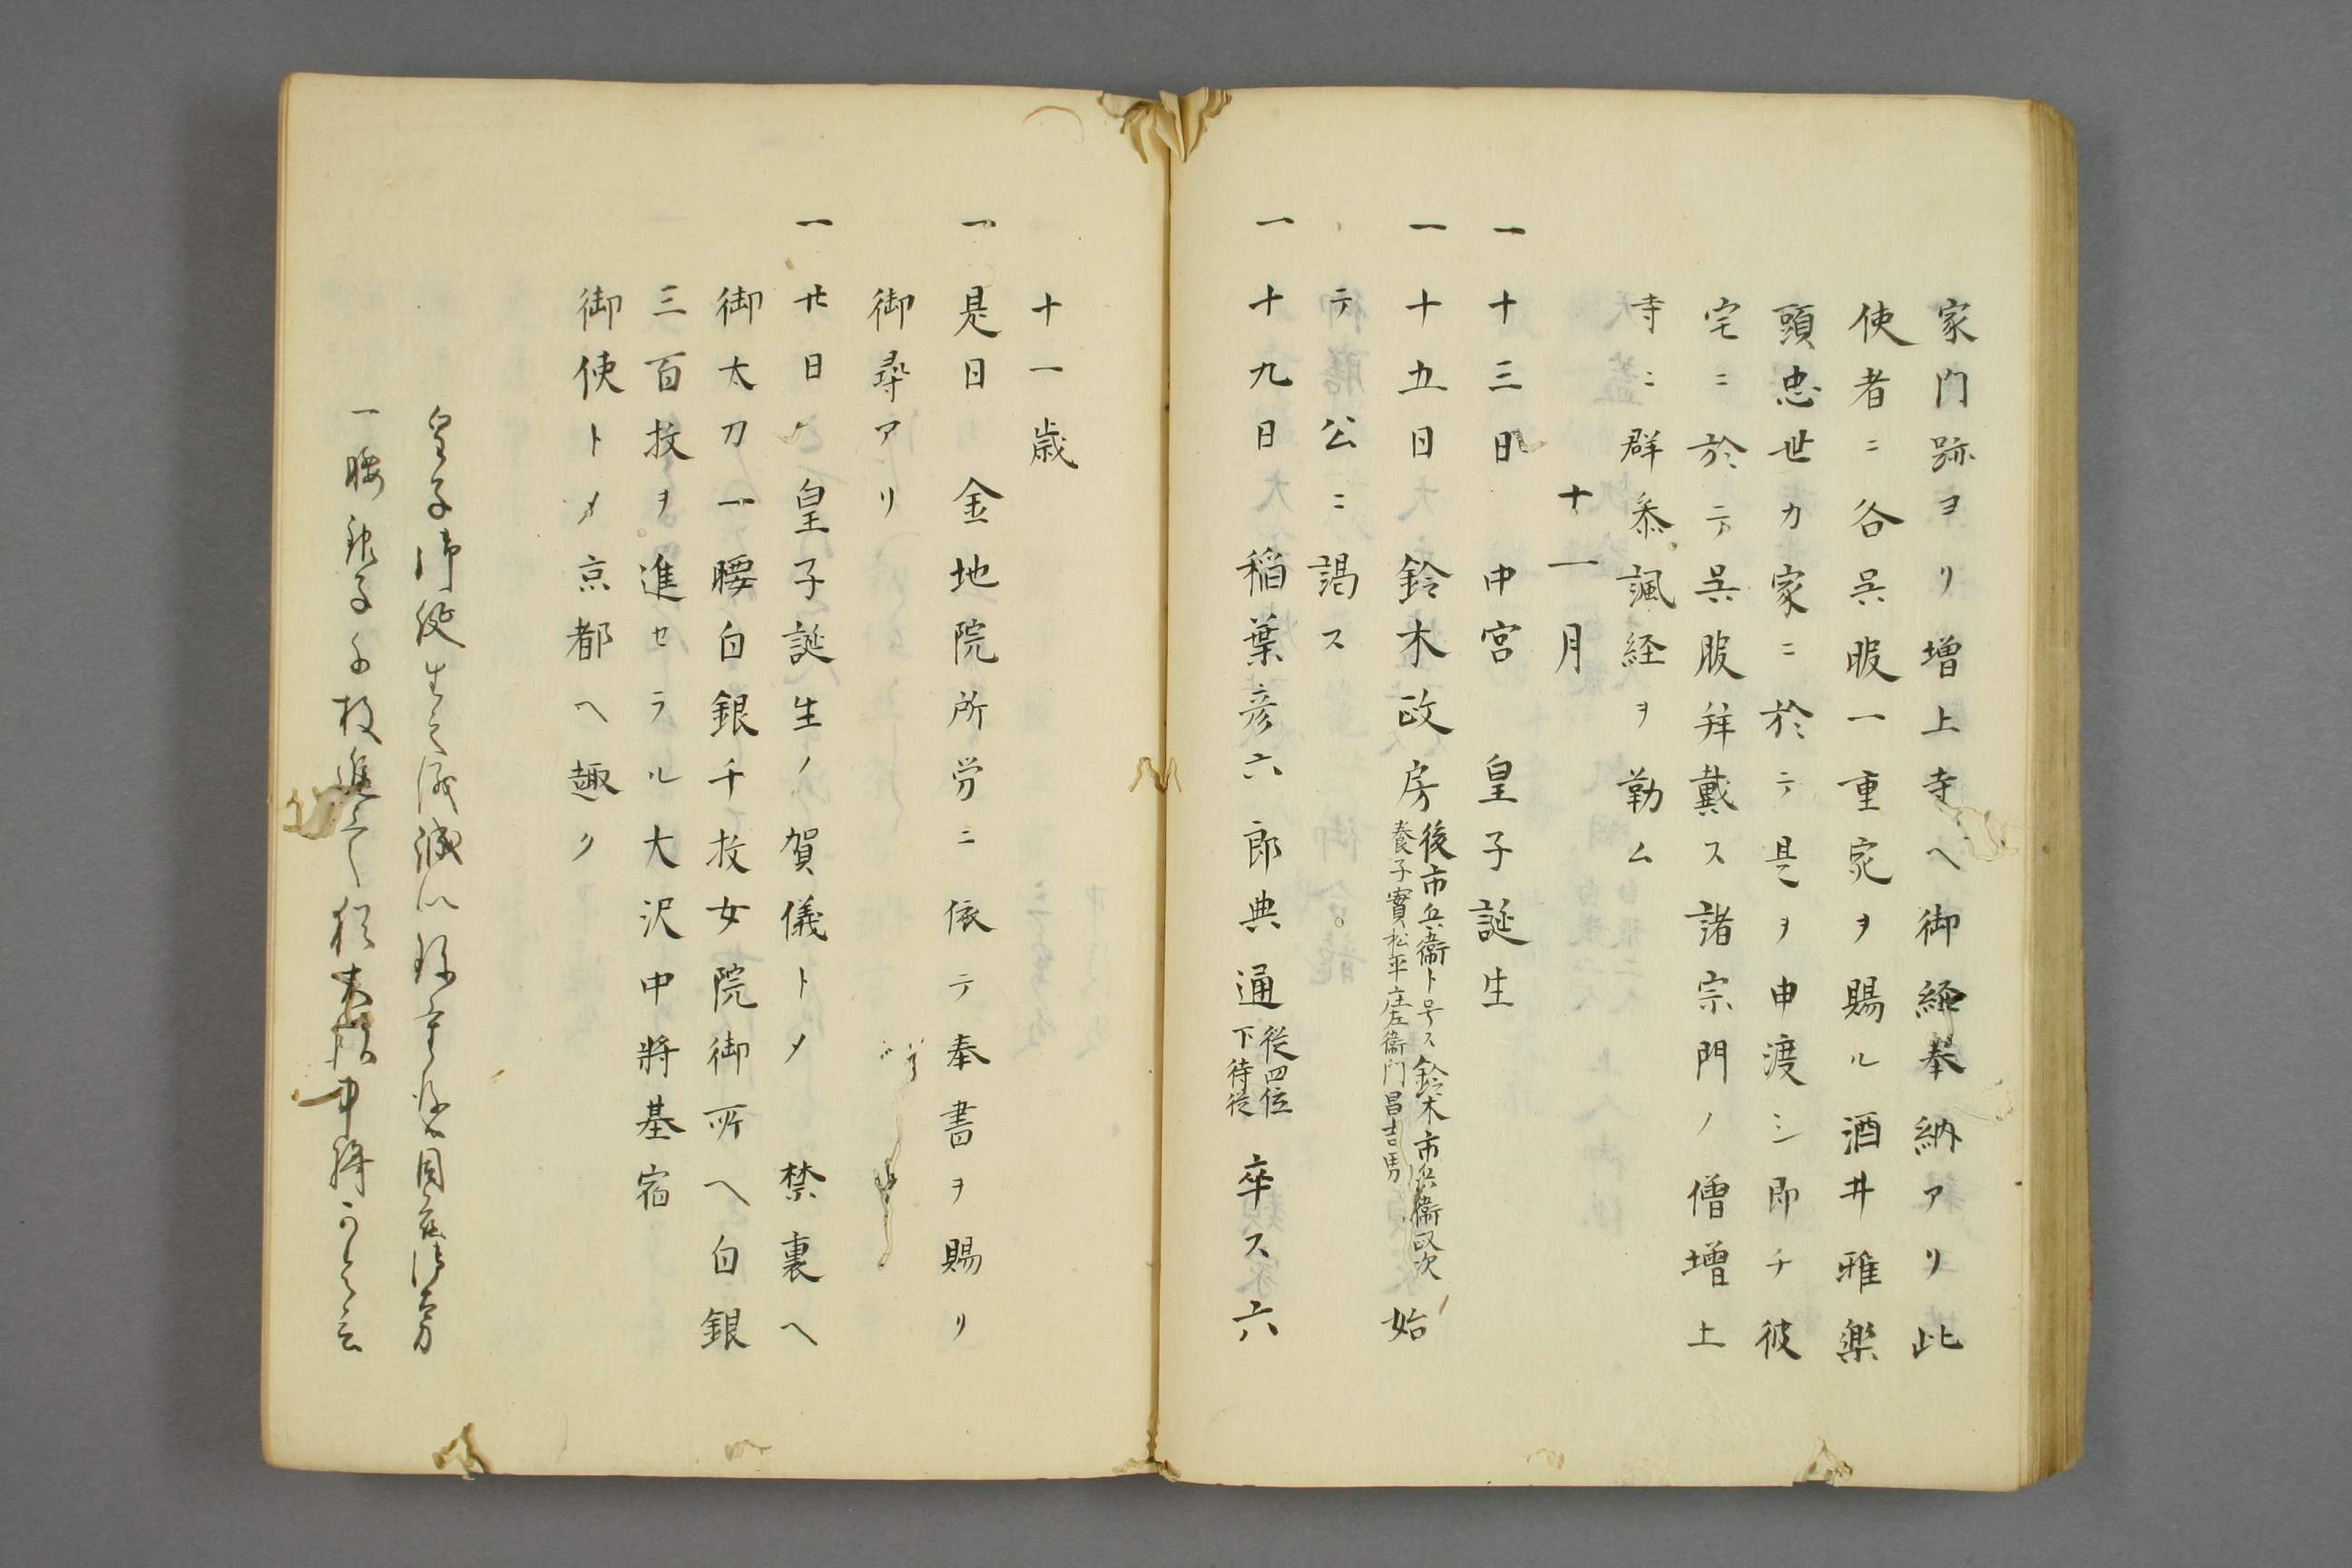 家門跡ヨリ増上寺ヘ御経奉納アリ此
使者ニ各呉服一重宛ヲ賜ル酒井雅楽
頭忠世カ家ニ於テ是ヲ申渡シ即チ彼
宅ニ於テ呉服拜戴ス諸宗門ノ僧増上
寺ニ群参諷経ヲ勤ム
十一月
一十三日 中宮 皇子誕生
一十五日鈴木政房後市兵衛ト号ス鈴木市兵衛政次
養子實松平庄左衛門昌吉男始
テ公ニ謁ス
一十九日稲葉彦六郎典通従四位
下侍従卒ス六
十一歳
一是日 金地院所労ニ依テ奉書ヲ賜リ
御尋アリ
一廿日 皇子誕生ノ賀儀トメ 禁裏ヘ
御太刀一腰白銀千枚女院御所ヘ白銀
三百枚ヲ進セラル大沢中将基宿
御使トメ京都ヘ趣ク
皇子御誕生之儀誠以珍重
一腰銀子千枚進之猶大澤中将